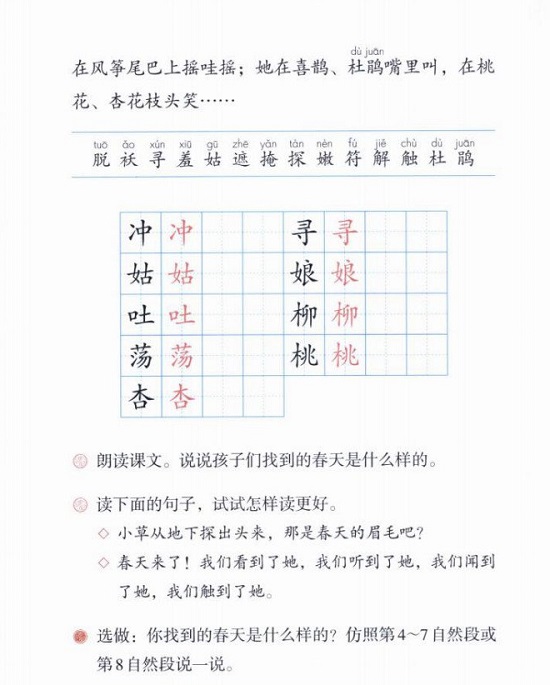 dù juān
在风筝尾巴上摇哇摇；她在喜鹊、杜鹃嘴里叫，在桃
花、杏花枝头笑……
tuō ǎo xún xiū gū zhē yǎn tàn nèn fú jiě chù dù juān
脱 袄 寻 羞 姑 遮 掩 探 嫩 符 解 触 杜 鹃
冲 冲 寻 寻
姑 姑 娘 娘
吐 吐 柳 柳
荡 荡 桃 桃
杏 杏
朗读课文。说说孩子们找到的春天是什么样的。
读下面的句子，试试怎样读更好。
◇ 小草从地下探出头来，那是春天的眉毛吧？
◇ 春天来了！我们看到了她，我们听到了她，我们闻到
了她，我们触到了她。
选做：你找到的春天是什么样的？仿照第4～7自然段或
第8自然段说一说。